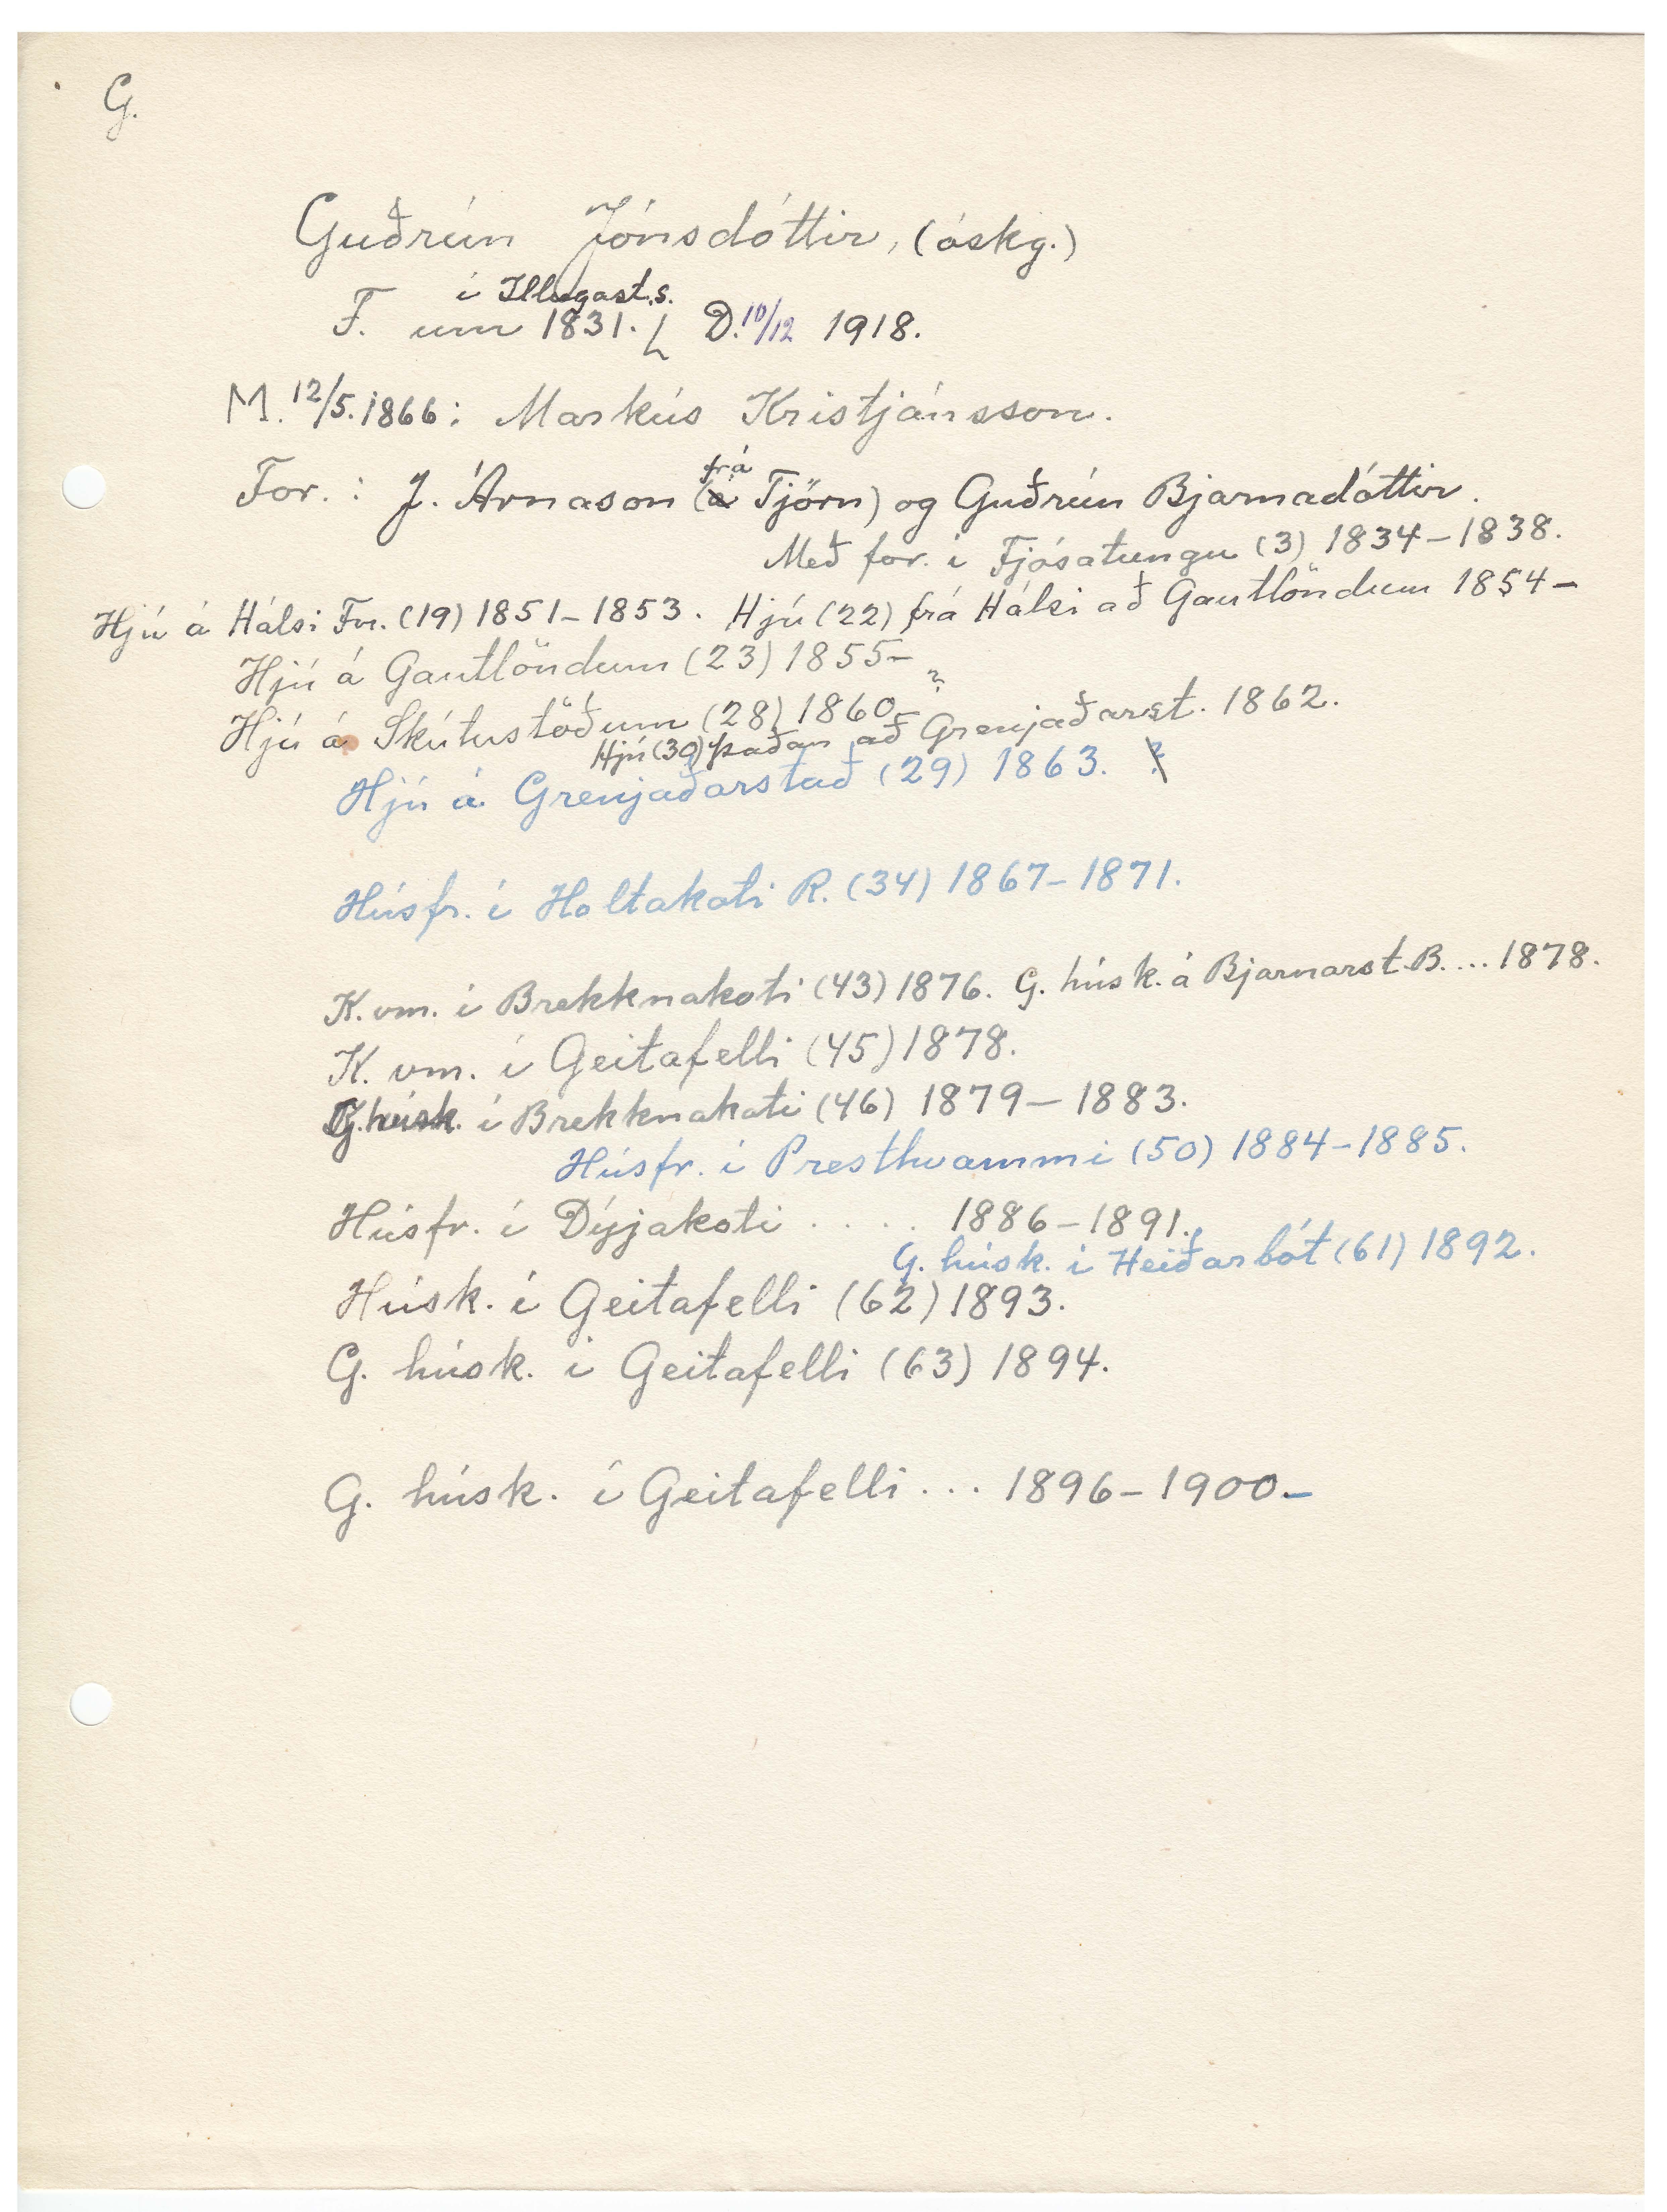 G.
Guðrún Jónsdóttir, (óskg.)
í Illugast.s.
F. um 1831. D. 10/12 1918.
M. 12/5. 1866: Markús Kristjánsson.
frá
For.: J. Árnason (á Tjörn) og Guðrún Bjarnadóttir.
Með for. í Fjósatungu (3) 1834-1838.
Hjú á Hálsi Fn. (19) 1851-1853. Hjú (22) frá Hálsi að Gautlöndum 1854-
Hjú á Gautlöndum (23) 1855-
Hjú á Skútustöðum (28) 1860- ?
Hjú (30) þaðan að Grenjaðarst. 1862.
Hjú á Grenjaðarstað (29) 1863. ?
Húsfr. í Holtakoti R. (34) 1867-1871.
K.vm. í Brekknakoti (43) 1876. G. húsk. á Bjarnarst. B. ... 1878.
K. vm. í Geitafelli (45) 1878.
G. húsk. í Brekknakoti (46) 1879-1883.
Húsfr. í Presthvammi (50) 1884-1885.
Húsfr. í Dýjakoti ..... 1886-1891.
G. húsk. í Heiðarbót (61) 1892.
Húsk. í Geitafelli (62) 1893.
G. húsk. í Geitafelli (63) 1894.
G. húsk. í Geitafelli ... 1896-1900-